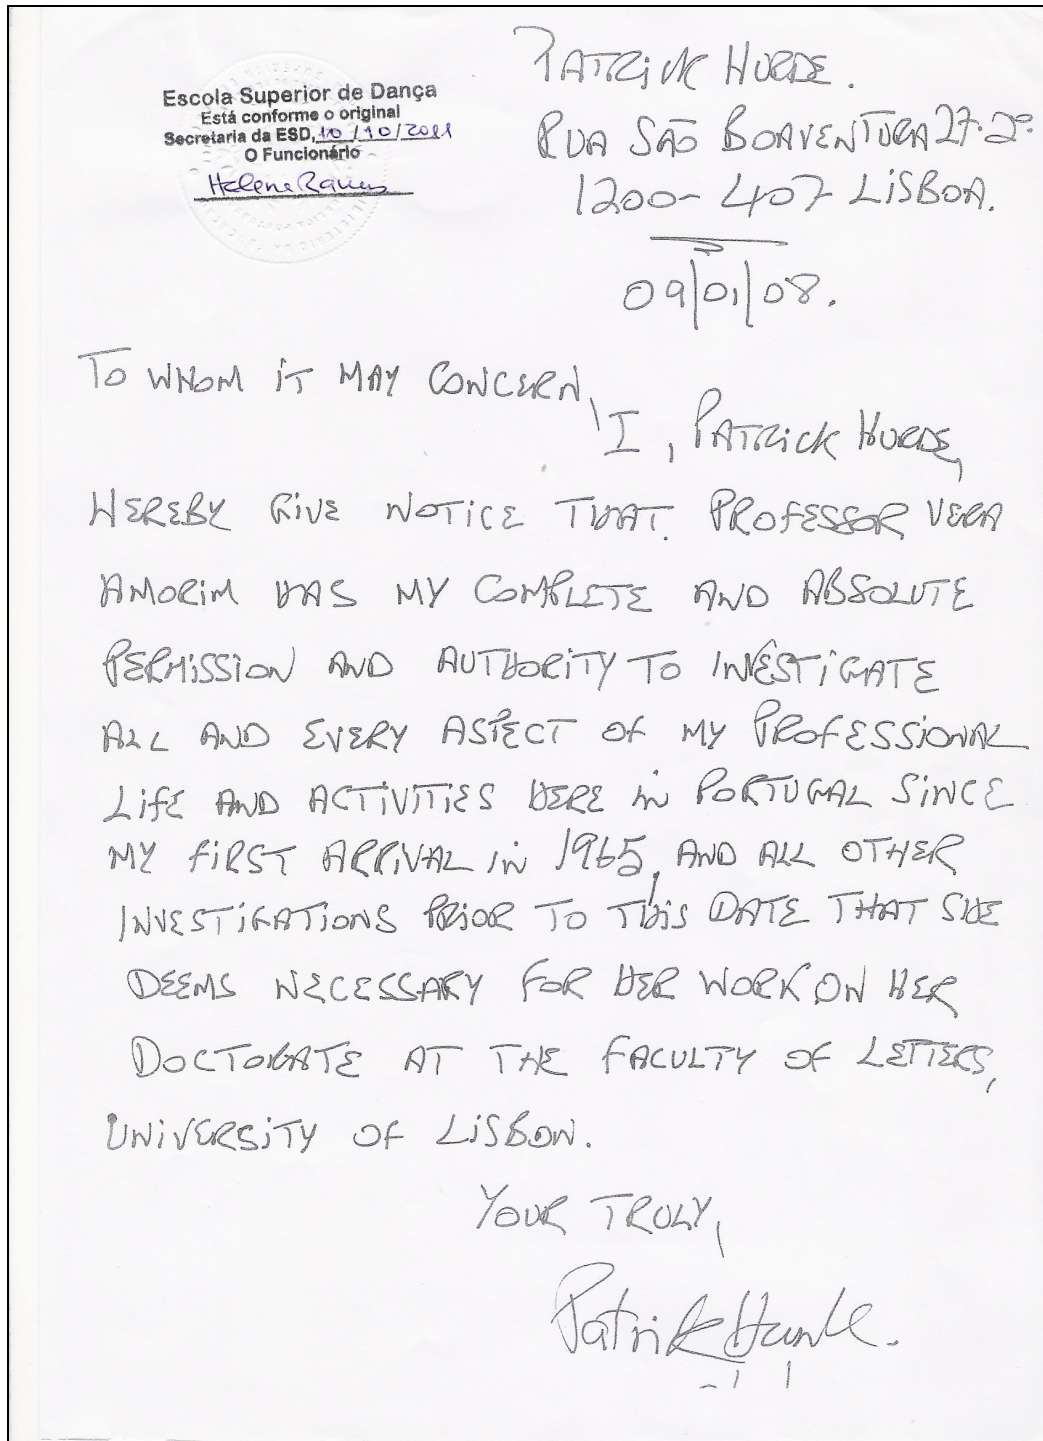 Escola Superior de Dança
Está conforme o original
Secretaria da ESD, 10/10/2011
O Funcionário
PATRICK HURDE.
RUA SÃO BOAVENTURA 27-2º.
1200-407 LISBOA.
09/01/08.
TO WHOM IT MAY CONCERN,
I, PATRICK HURDE,
HEREBY GIVE NOTICE THAT PROFESSOR VERA
AMORIM HAS MY COMPLETE AND ABSOLUTE
PERMISSION AND AUTHORITY TO INVESTIGATE
ALL AND EVERY ASPECT OF MY PROFESSIONAL
LIFE AND ACTIVITIES HERE IN PORTUGAL SINCE
MY FIRST ARRIVAL IN 1965, AND ALL OTHER
INVESTIGATIONS PRIOR TO THIS DATE THAT SHE
DEEMS NECESSARY FOR HER WORK ON HER
DOCTORATE AT THE FACULTY OF LETTERS,
UNIVERSITY OF LISBON.
YOUR TRULY,
Patrick Hurde.